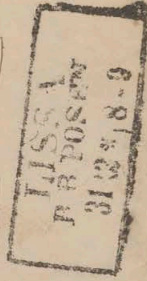 LISSA
POSEN
31 12 8-9